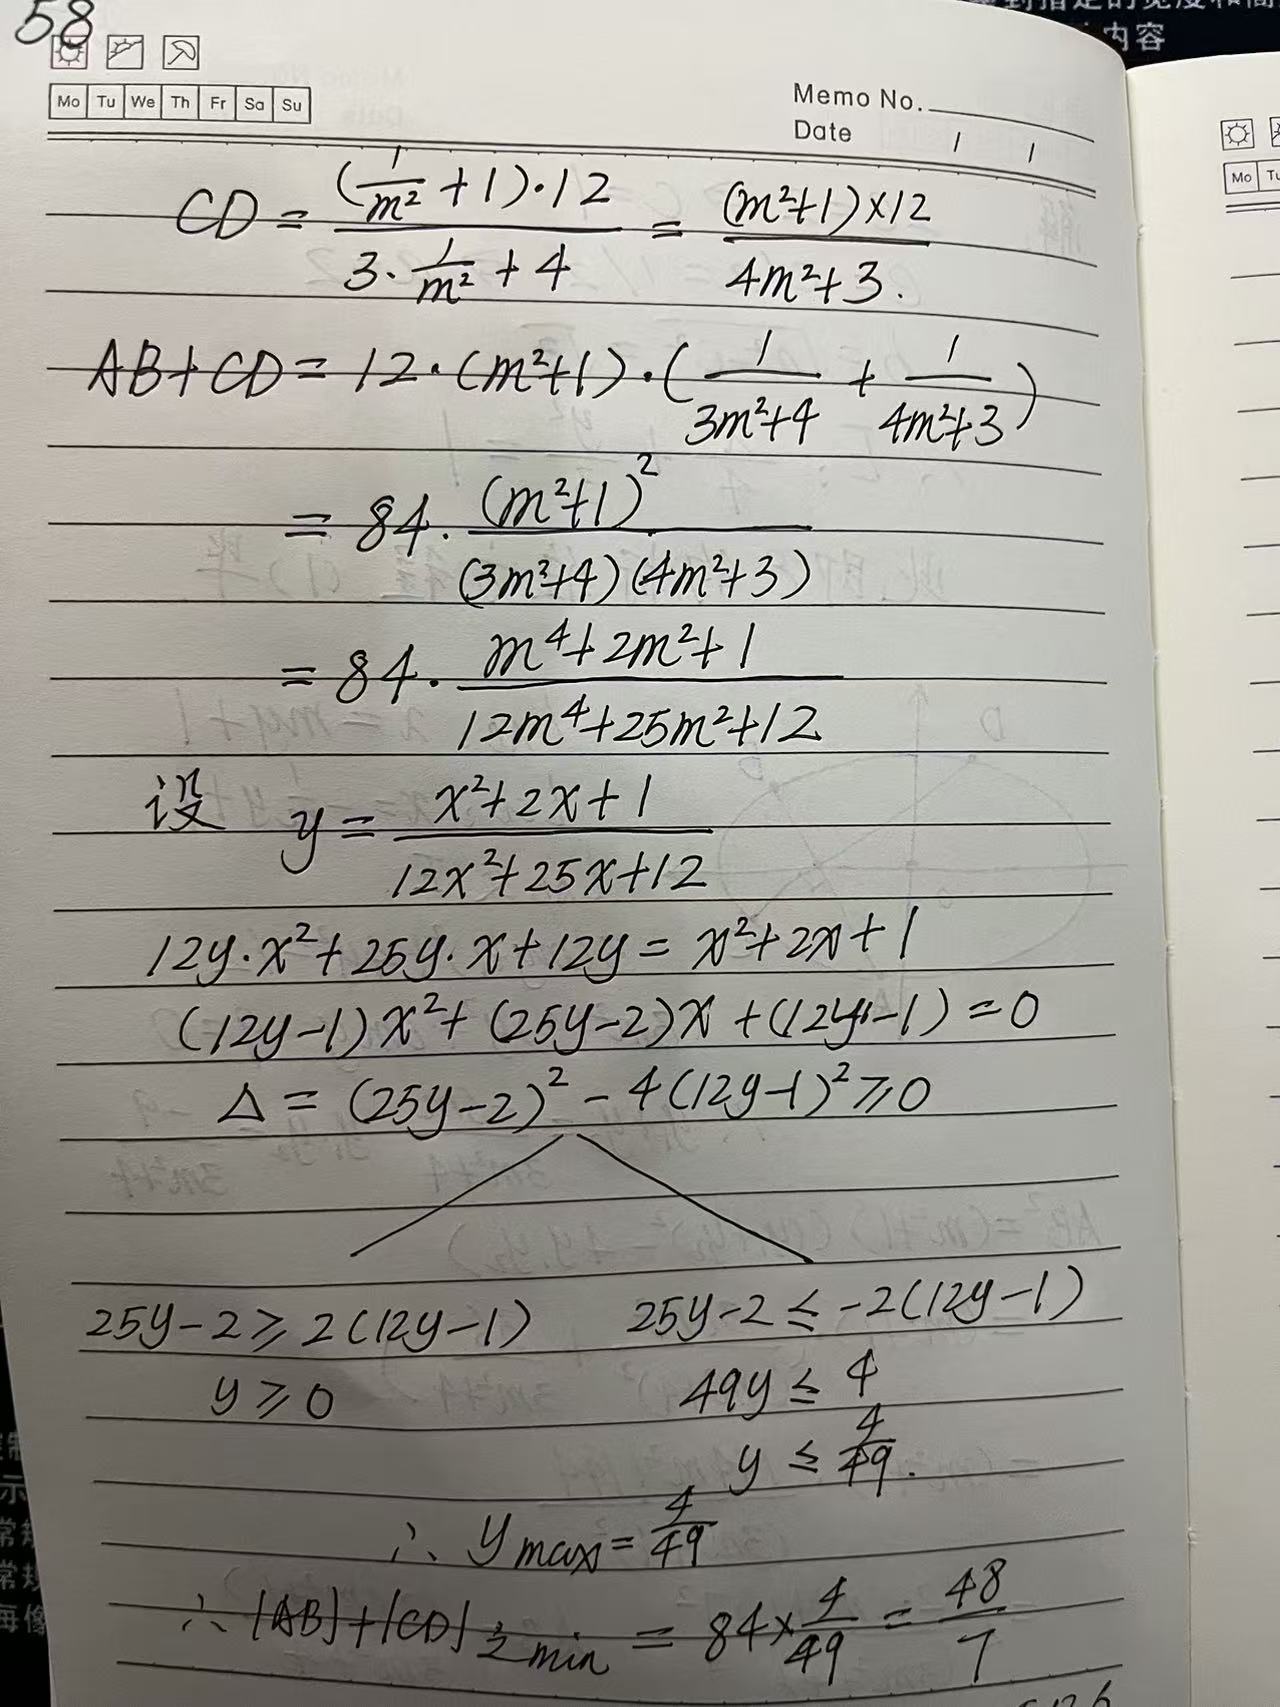 58
Mo Tu We Th Fr Sa Su
Memo No.
Date / /
CD = ((1/m²)+1)·12 / (3·(1/m²)+4) = (m²+1)×12 / (4m²+3).
AB+CD = 12·(m²+1)·(1/(3m²+4) + 1/(4m²+3))
= 84·(m²+1)² / ((3m²+4)(4m²+3))
= 84·(m⁴+2m²+1) / (12m⁴+25m²+12)
设 y = (x²+2x+1) / (12x²+25x+12)
12y·x²+25y·x+12y = x²+2x+1
(12y-1)x²+(25y-2)x+(12y-1)=0
Δ = (25y-2)²-4(12y-1)²≥0
25y-2≥2(12y-1) 25y-2≤-2(12y-1)
y≥0 49y≤4
y≤4/49.
∴ y max = 4/49
∴ |AB|+|CD| min = 84×4/49 = 48/7
内容
Mo Tu